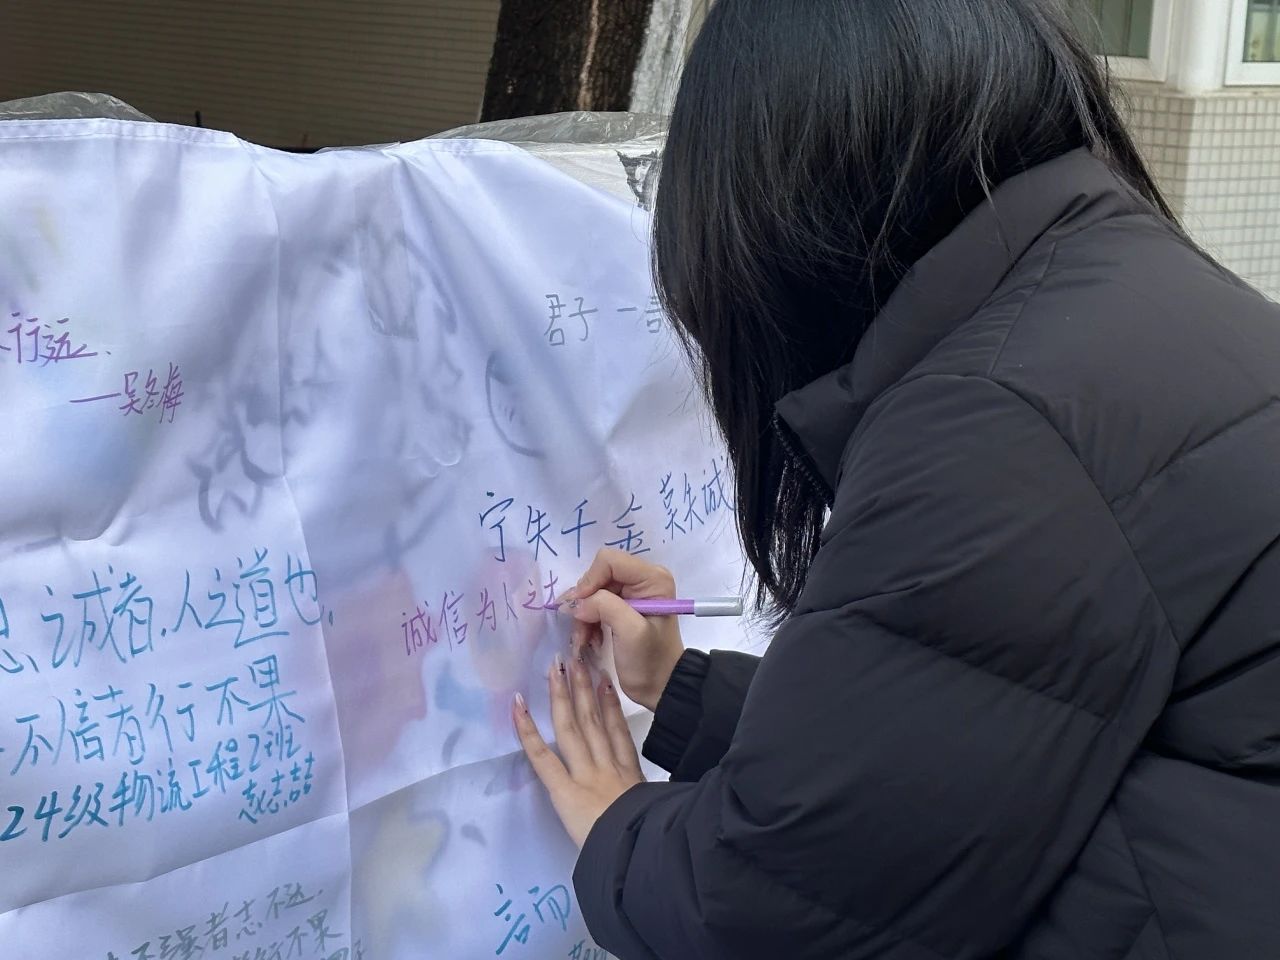 行远.
——吴冬梅
君子一
宁失千金,莫失诚
诚信为人之本
思诚者,人之道也.
不信者行不果
24级物流工程2班
不强者志不达.
行不果
言而